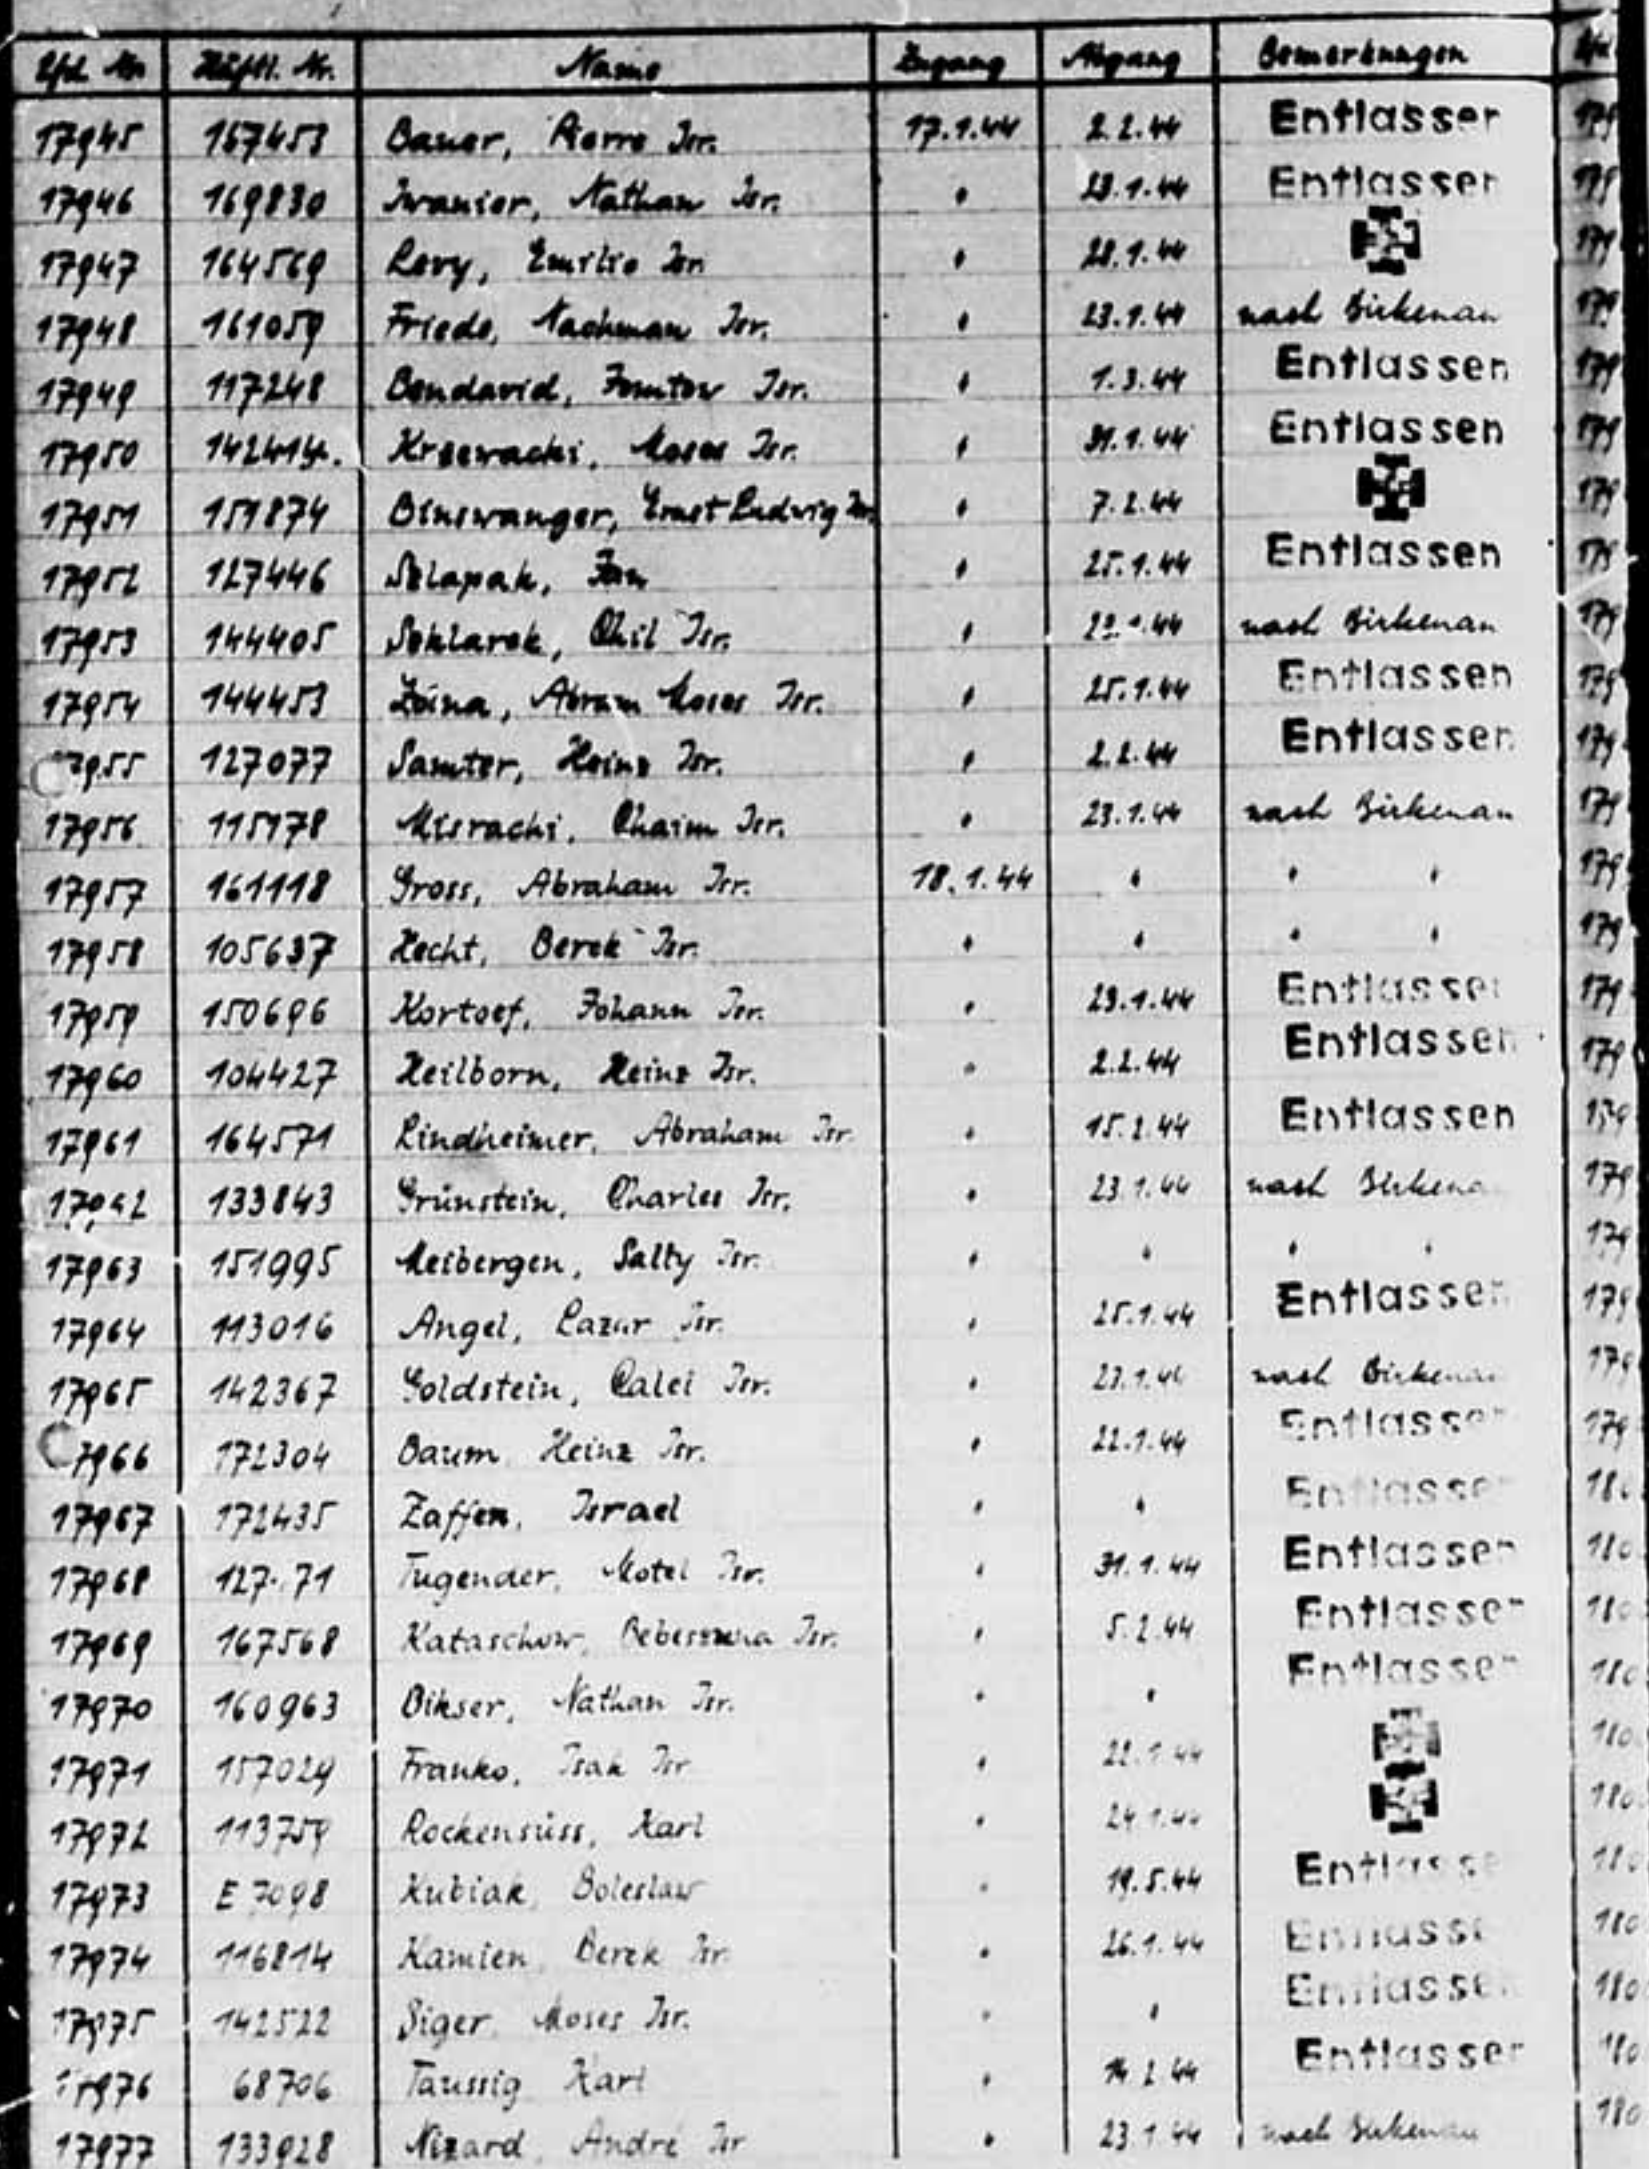 Lfd. Nr. Häftl. Nr. Name Zugang Abgang Bemerkungen Lfd.
17945 167453 Bauer, Pierre Isr. 17.1.44 2.2.44 Entlassen 179
17946 169830 Iwanier, Nathan Isr. " 29.1.44 Entlassen 179
17947 164569 Levy, Emilio Isr. " 28.1.44 179
17948 161059 Friede, Nachman Isr. " 23.1.44 nach Birkenau 179
17949 117248 Bendavid, Jomtow Isr. " 1.3.44 Entlassen 179
17950 142414. Krzewacki, Moses Isr. " 31.1.44 Entlassen 179
17951 151874 Binswanger, Ernst Ludwig Isr. " 7.2.44 179
17952 127446 Szlapak, Jan " 25.1.44 Entlassen 179
17953 144405 Seklarek, Chil Isr. " .44 nach Birkenau 179
17954 144453 Abram Moses Isr. " 25.1.44 Entlassen 179
17955 127077 Samter, Heinz Isr. " 2.2.44 Entlassen 179
17956 115178 Misrachi, Chaim Isr. " 23.1.44 nach Birkenau 179
17957 161118 Gross, Abraham Isr. 18.1.44 " " " 179
17958 105637 Hecht, Berek Isr. " " " " 179
17959 150696 Kortoef, Johann Isr. " 29.1.44 Entlassen 179
17960 104427 Heilborn, Heinz Isr. " 2.2.44 Entlassen 179
17961 164571 Lindheimer, Abraham Isr. " 15.2.44 Entlassen 179
17962 133843 Grünstein, Charles Isr. " 23.1.44 nach Birkenau 179
17963 151995 Meibergen, Sally Isr. " " " " 179
17964 113016 Angel, Lazar Isr. " 25.1.44 Entlassen 179
17965 142367 Goldstein, Calel Isr. " 23.1.44 nach Birkenau 179
17966 172304 Baum, Heinz Isr. " 22.1.44 Entlassen 179
17967 172435 Zaffen, Israel " " Entlassen 180
17968 Tugender, Motel Isr. " 31.1.44 Entlassen 180
17969 167568 Kataschow, Isr. " 5.2.44 Entlassen 180
17970 160963 Bikser, Nathan Isr. " " Entlassen 180
17971 157029 Franko, Isak Isr. " 22.1.44 180
17972 113759 Rockensüss, Karl " 24.1.44 180
17973 E 7098 Kubiak, Boleslaw " 19.5.44 Entlassen 180
17974 116814 Kamien, Berek Isr. " 26.1.44 Entlassen 180
17975 142522 Siger, Moses Isr. " " Entlassen 180
17976 68706 Taussig Karl " 14.2.44 Entlassen 180
17977 133928 Nizard, André Isr. " 23.1.44 nach Birkenau 180